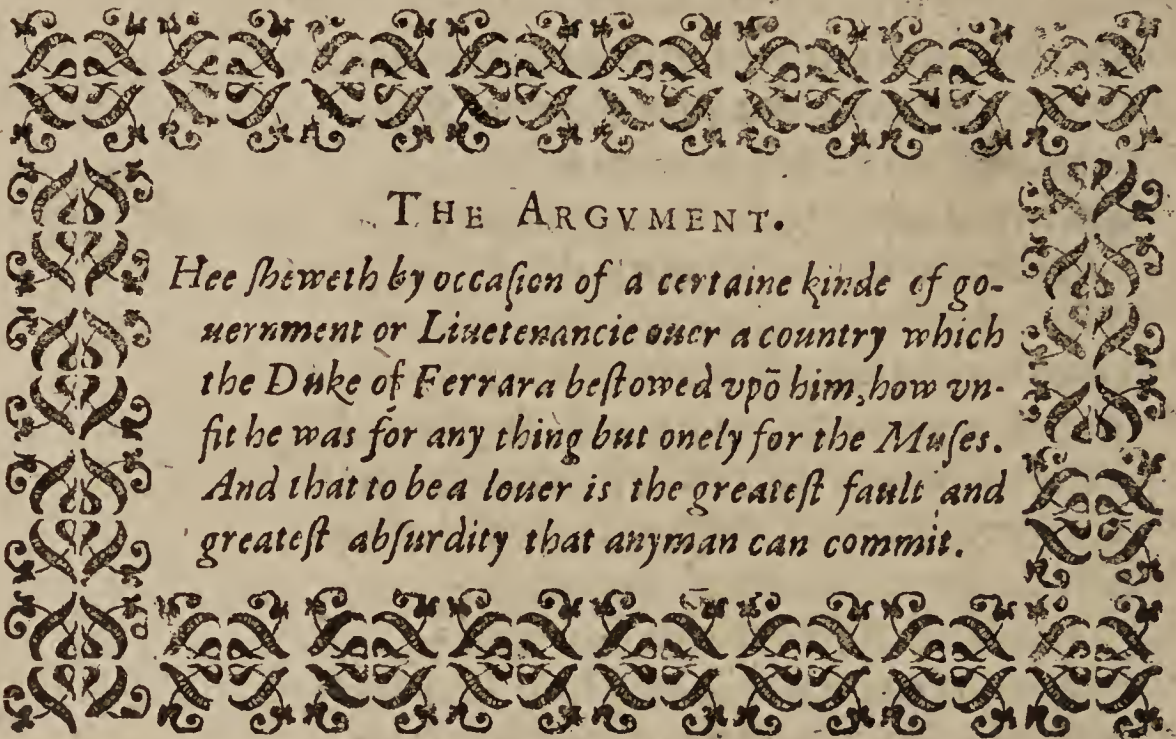 THE ARGVMENT.
Hee ſheweth by occaſion of a certaine kinde of go-
uernment or Liuetenancie ouer a country which
the Duke of Ferrara beſtowed vpõ him, how vn-
fit he was for any thing but onely for the Muſes.
And that to be a louer is the greateſt fault and
greateſt abſurdity that anyman can commit.